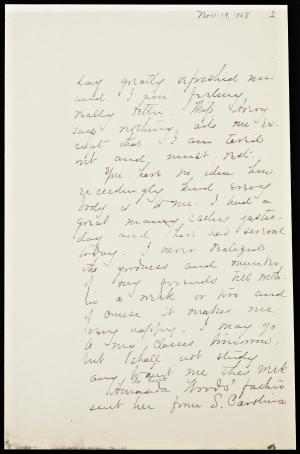 Nov. 19, 1868 2
day greatly refreshed me
and I am feeling
really better. Miss Avery
says nothing ails me ex-
cept that I am tired
out and must rest.
You have no idea how
exceedingly kind every
body is to me. I had a
great many calls yester-
day and have had several
today. I never realized
the goodness and number
of my friends till with-
in a week or two and
of course it makes me
very happy. I may go
to my classes tomorrow,
but I shall not study
any to hurt me this week
Amanda Woods' father
sent her from S. Carolina